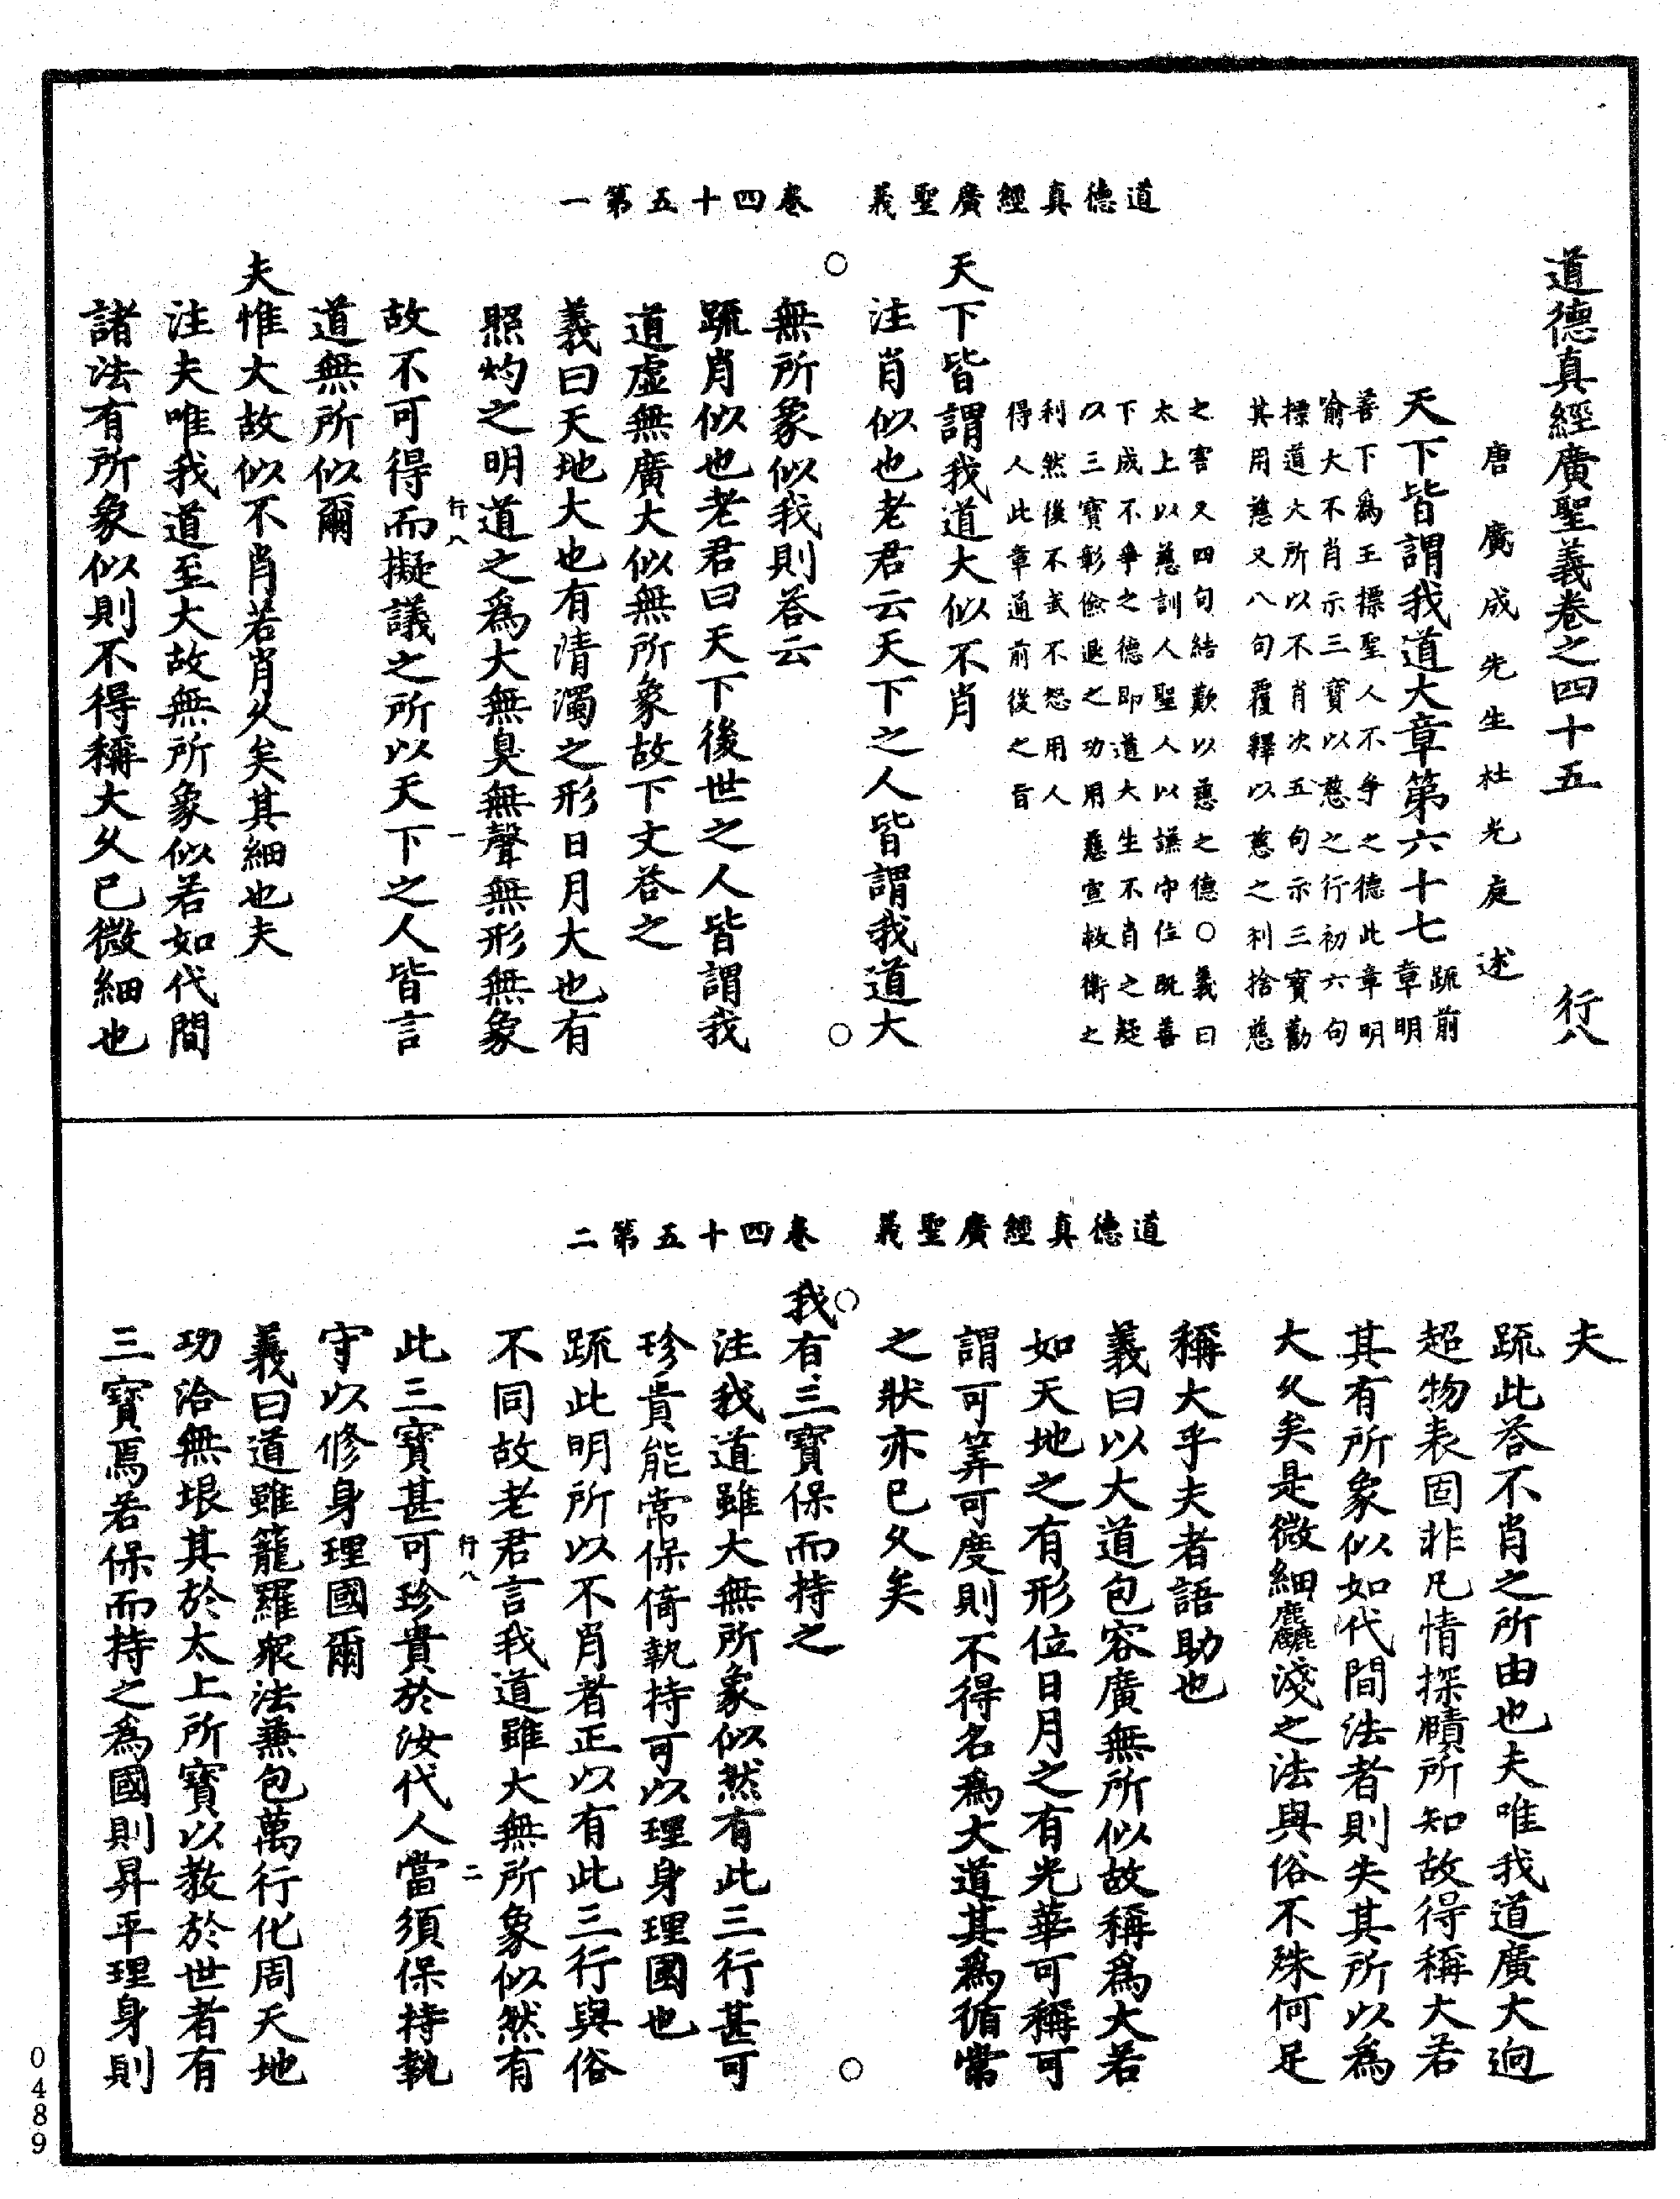 道德真經廣聖義　卷四十五第一
道德真經廣聖義卷之四十五　行八
唐廣成先生杜光庭述
天下皆謂我道大章第六十七
疏前章明
善下爲王標聖人不爭之德此章明
喻大不肖示三寶以慈之行初六句
標道大所以不肖次五句示三寶勸
其用慈又八句覆釋以慈之利捨慈
之害又四句結歎以慈之德〇義曰
太上以慈訓人聖人以謙守位既善
下成不爭之德即道大生不肖之疑
以三寶彰儉退之功用慈宣救衛之
利然後不武不怒用人
得人此章通前後之旨
天下皆謂我道大似不肖
注肖似也老君云天下之人皆謂我道大
無所象似我則荅云
疏肖似也老君曰天下後世之人皆謂我
道虛無廣大似無所象故下文荅之
義曰天地大也有清濁之形日月大也有
照灼之明道之爲大無臭無聲無形無象
行八　一
故不可得而擬議之所以天下之人皆言
道無所似爾
夫惟大故似不肖若肖久矣其細也夫
注夫唯我道至大故無所象似若如代間
諸法有所象似則不得稱大久已微細也
道德真經廣聖義　卷四十五第二
夫
疏此荅不肖之所由也夫唯我道廣大迥
超物表固非凡情探賾所知故得稱大若
其有所象似如代間法者則失其所以爲
大久矣是微細麤淺之法與俗不殊何足
稱大乎夫者語助也
義曰以大道包容廣無所似故稱爲大若
如天地之有形位日月之有光華可稱可
謂可筭可度則不得名爲大道其爲循常
之狀亦已久矣
我有三寶保而持之
注我道雖大無所象似然有此三行甚可
珍貴能常保倚執持可以理身理國也
疏此明所以不肖者正以有此三行與俗
不同故老君言我道雖大無所象似然有
行八　二
此三寶甚可珍貴於汝代人當須保持執
守以修身理國爾
義曰道雖籠羅衆法兼包萬行化周天地
功洽無垠其於太上所寶以教於世者有
三寶焉若保而持之爲國則昇平理身則
0489